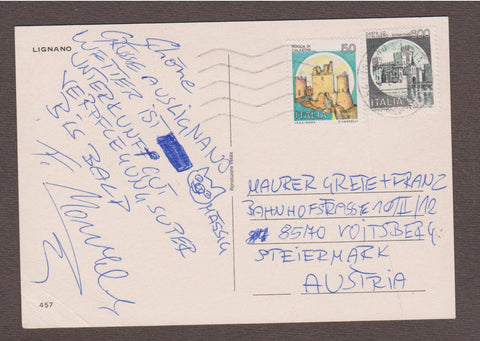 LIGNANO
Schöne
GRÜSSE AUS LIGNANO
WETTER IST MASSIG
UNTERKUNFT GUT
VERPFLEGUNG SUPER
BIS BALD
50
ROCCA DI CALASCIO
ITALIA
800
ITALIA
MAURER GRETE + FRANZ
BAHNHOFSTRASSE 10/II/12
8570 VOITSBERG
STEIERMARK
AUSTRIA
457